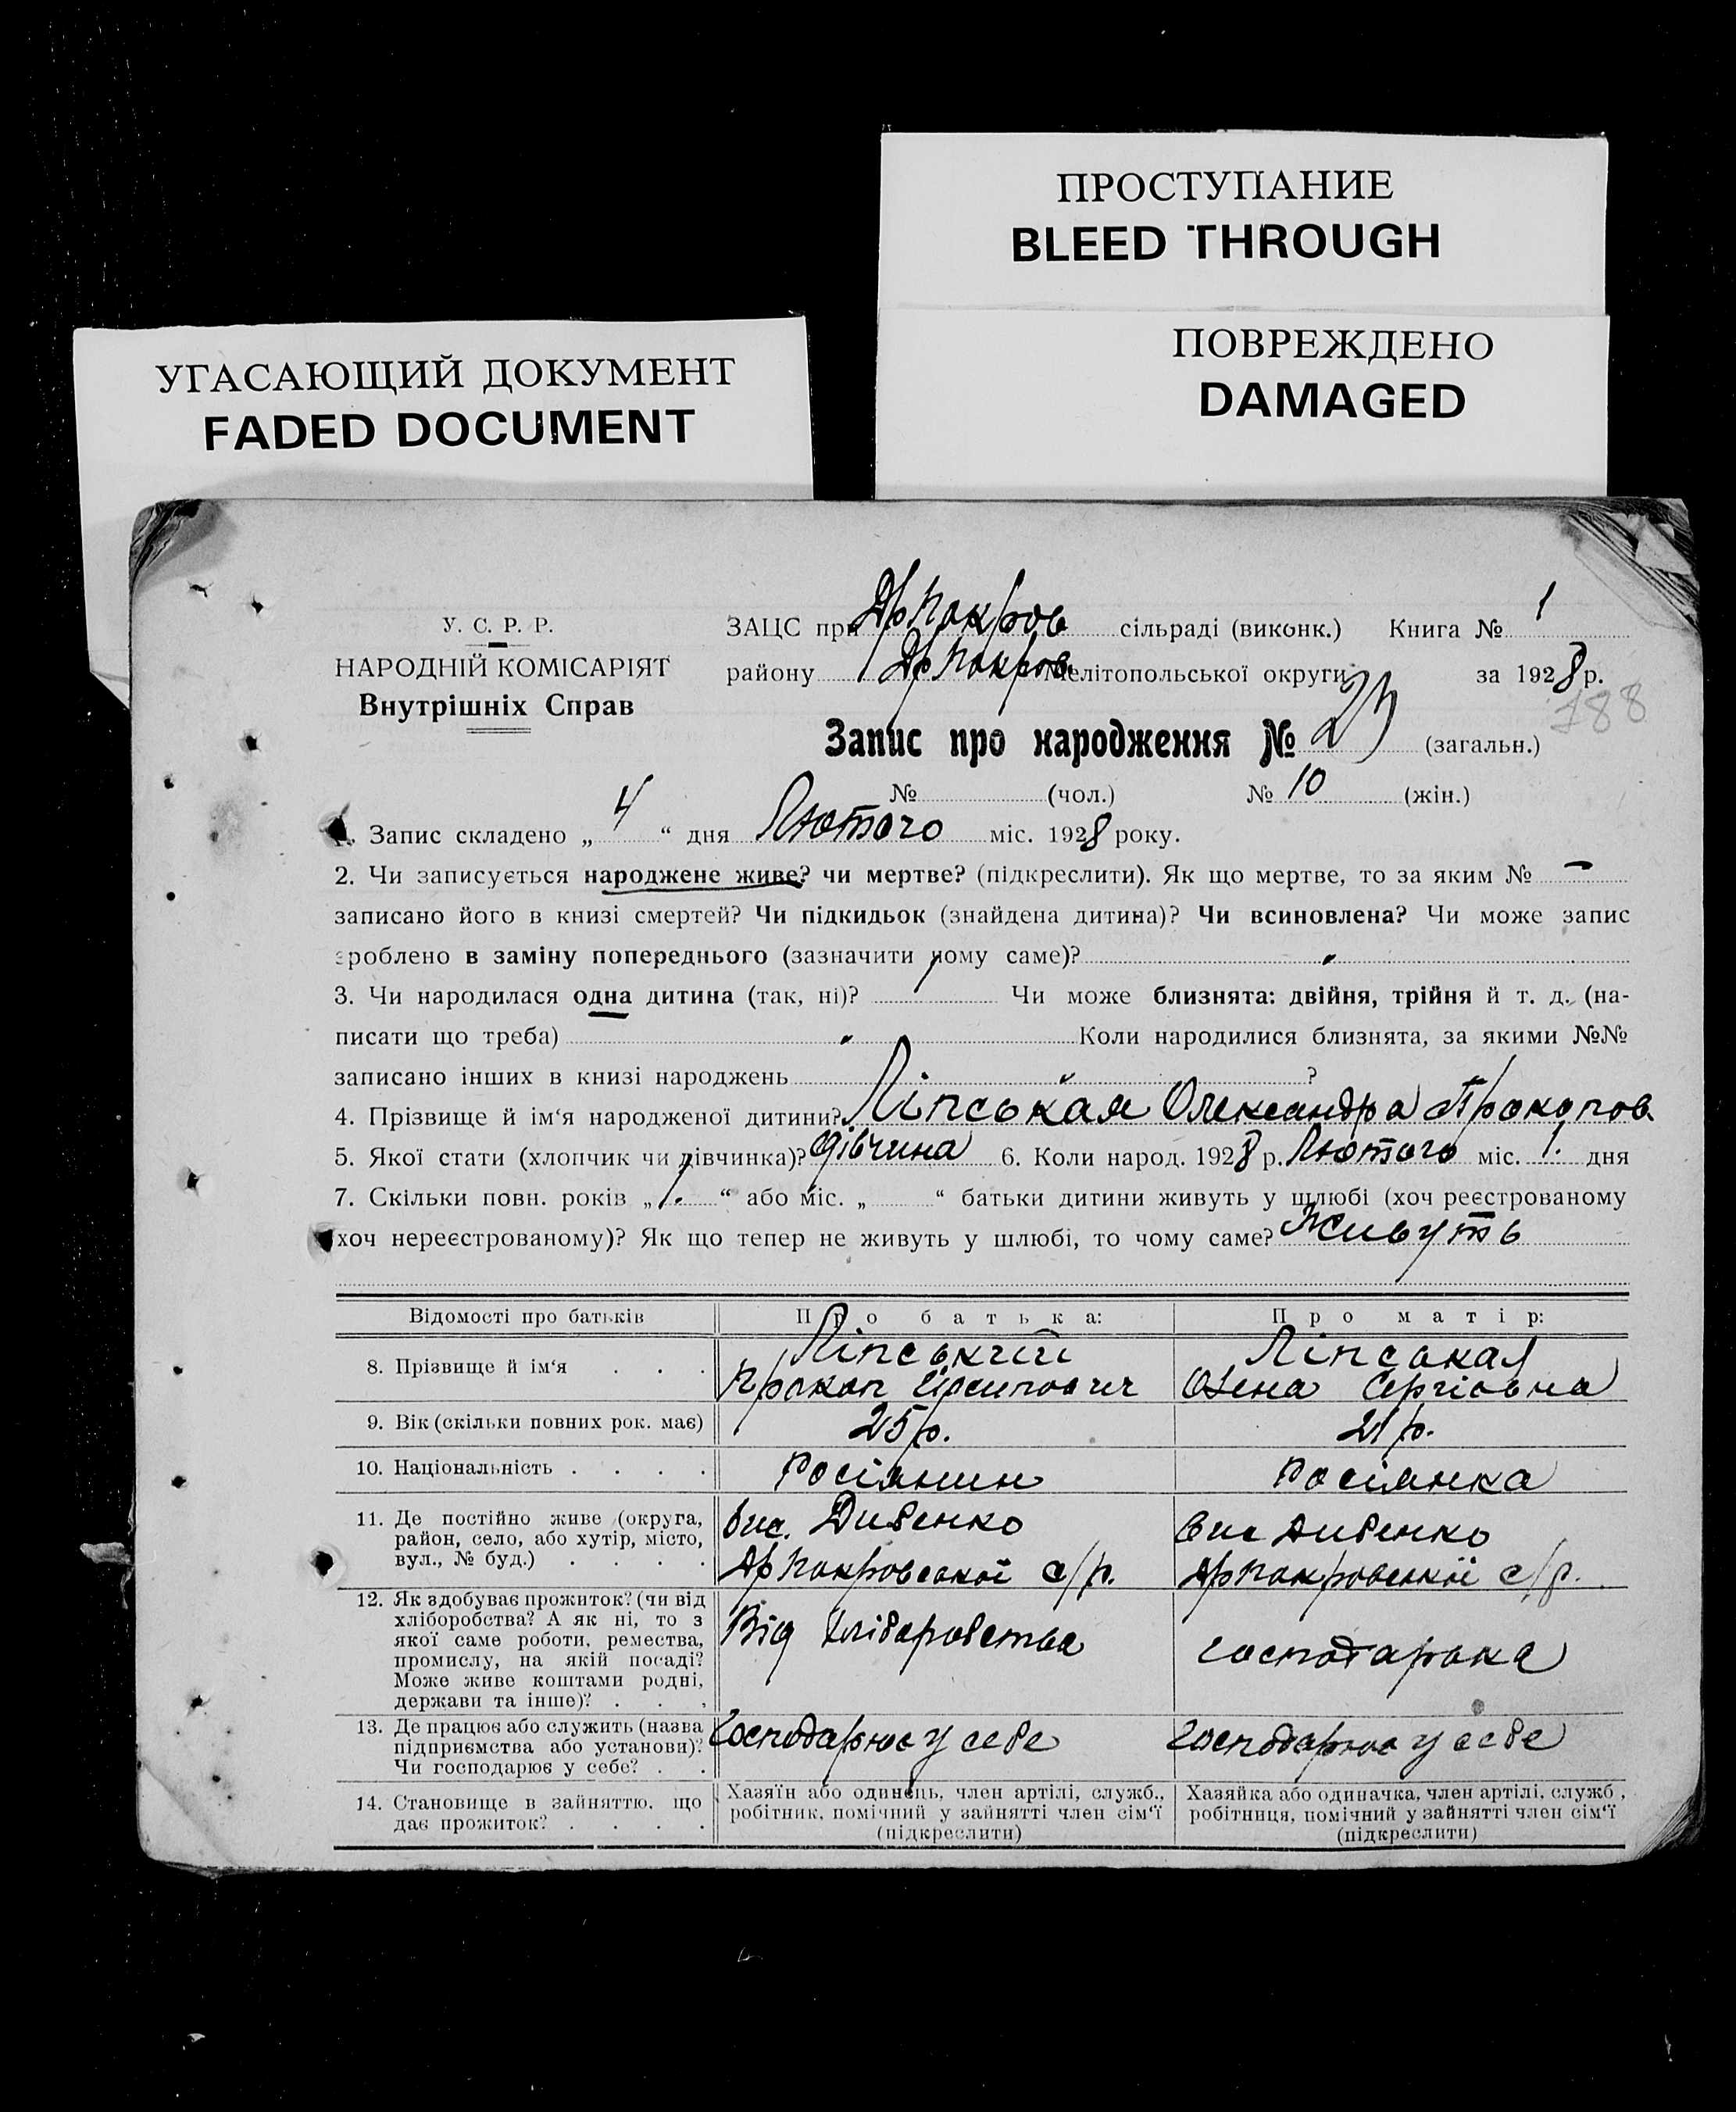 ПРОСТУПАНИЕ
BLEED THROUGH
ПОВРЕЖДЕНО
DAMAGED
УГАСАЮЩИЙ ДОКУМЕНТ
FADED DOCUMENT
У. С. Р. Р.
НАРОДНІЙ КОМІСАРІЯТ
Внутрішніх Справ
ЗАЦС при Др Покров сільраді (виконк.) Книга № 1
району Др Покров Мелітопольської округи за 1928 р.
188
Запис про народження № 23 (загальн.)
№ (чол.) № 10 (жін.)
1. Запис складено „ 4 “ дня Лютого міс. 1928 року.
2. Чи записується народжене живе? чи мертве? (підкреслити). Як що мертве, то за яким № –
записано його в книзі смертей? Чи підкидьок (знайдена дитина)? Чи всиновлена? Чи може запис
зроблено в заміну попереднього (зазначити чому саме)?
3. Чи народилася одна дитина (так, ні)? Чи може близнята: двійня, трійня й т. д. (на-
писати що треба) Коли народилися близнята, за якими №№
записано інших в книзі народжень ?
4. Прізвище й ім‘я народженої дитини? Ліпськая Олександра Прокопов
5. Якої стати (хлопчик чи дівчинка)? дівчина 6. Коли народ. 1928 р. Лютого міс. 1. дня
7. Скільки повн. років „ 7. “ або міс. „ “ батьки дитини живуть у шлюбі (хоч реєстрованому
хоч нереєстрованому)? Як що тепер не живуть у шлюбі, то чому саме? Живуть
Відомості про батьків Про батька: Про матір:
8. Прізвище й ім‘я Ліпський Ліпськая
Прокоп Олена Сергієвна
9. Вік (скільки повних рок. має) 25 р. 21 р.
10. Національність Росіянин Росіянка
11. Де постійно живе (округа, район, село, або хутір, місто, вул., № буд.) вис. Дибенко вис Дибенко
Др Покровської с/р. Др Покровської с/р.
12. Як здобуває прожиток? (чи від хліборобства? А як ні, то з якої саме роботи, ремества, промислу, на якій посаді? Може живе коштами родні, держави та інше)? Від хліборобства господарка
13. Де працює або служить (назва підприємства або установи)? Чи господарює у себе? Господарює у себе Господарює у себе
14. Становище в зайняттю, що дає прожиток? Хазяїн або одинець, член артілі, служб., робітник, помічний у зайнятті член сім‘ї (підкреслити) Хазяйка або одиначка, член артілі, служб., робітниця, помічний у зайнятті член сім‘ї (підкреслити)